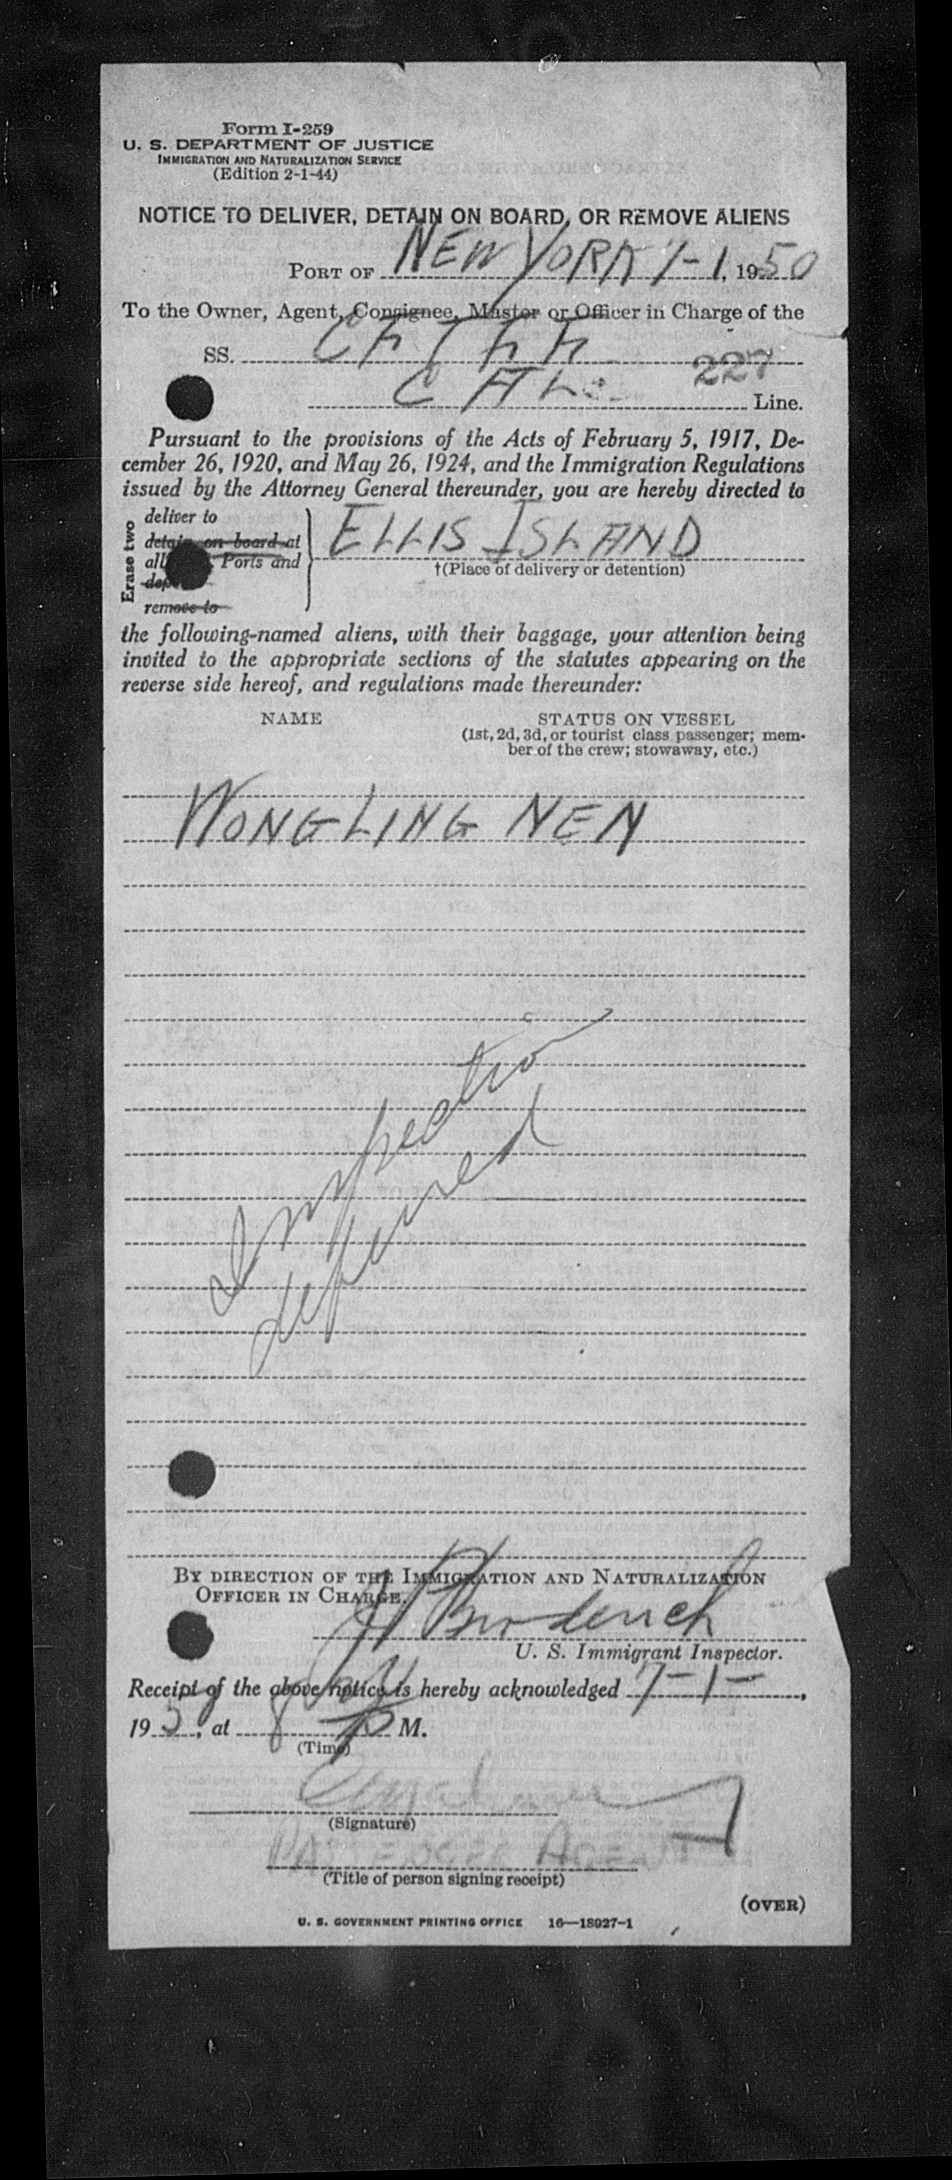 Form I-259
U. S. DEPARTMENT OF JUSTICE
IMMIGRATION AND NATURALIZATION SERVICE
(Edition 2-1-44)
NOTICE TO DELIVER, DETAIN ON BOARD, OR REMOVE ALIENS
PORT OF NEW YORK 7-1, 1950
To the Owner, Agent, Consignee, Master or Officer in Charge of the
SS.
C A L 227 Line.
Pursuant to the provisions of the Acts of February 5, 1917, De-
cember 26, 1920, and May 26, 1924, and the Immigration Regulations
issued by the Attorney General thereunder, you are hereby directed to
Erase two
deliver to
detain on board at
all Ports and
remove to
ELLIS ISLAND
†(Place of delivery or detention)
the following-named aliens, with their baggage, your attention being
invited to the appropriate sections of the statutes appearing on the
reverse side hereof, and regulations made thereunder:
NAME STATUS ON VESSEL
(1st, 2d, 3d, or tourist class passenger; mem-
ber of the crew; stowaway, etc.)
WONG LING NEN
Inspection
deferred
BY DIRECTION OF THE IMMIGRATION AND NATURALIZATION
OFFICER IN CHARGE.
Broderick
U. S. Immigrant Inspector.
Receipt of the above notice is hereby acknowledged 7-1-,
19 5, at 8 P M.
(Time)
(Signature)
PASSENGER AGENT
(Title of person signing receipt)
(OVER)
U. S. GOVERNMENT PRINTING OFFICE 16—18027-1